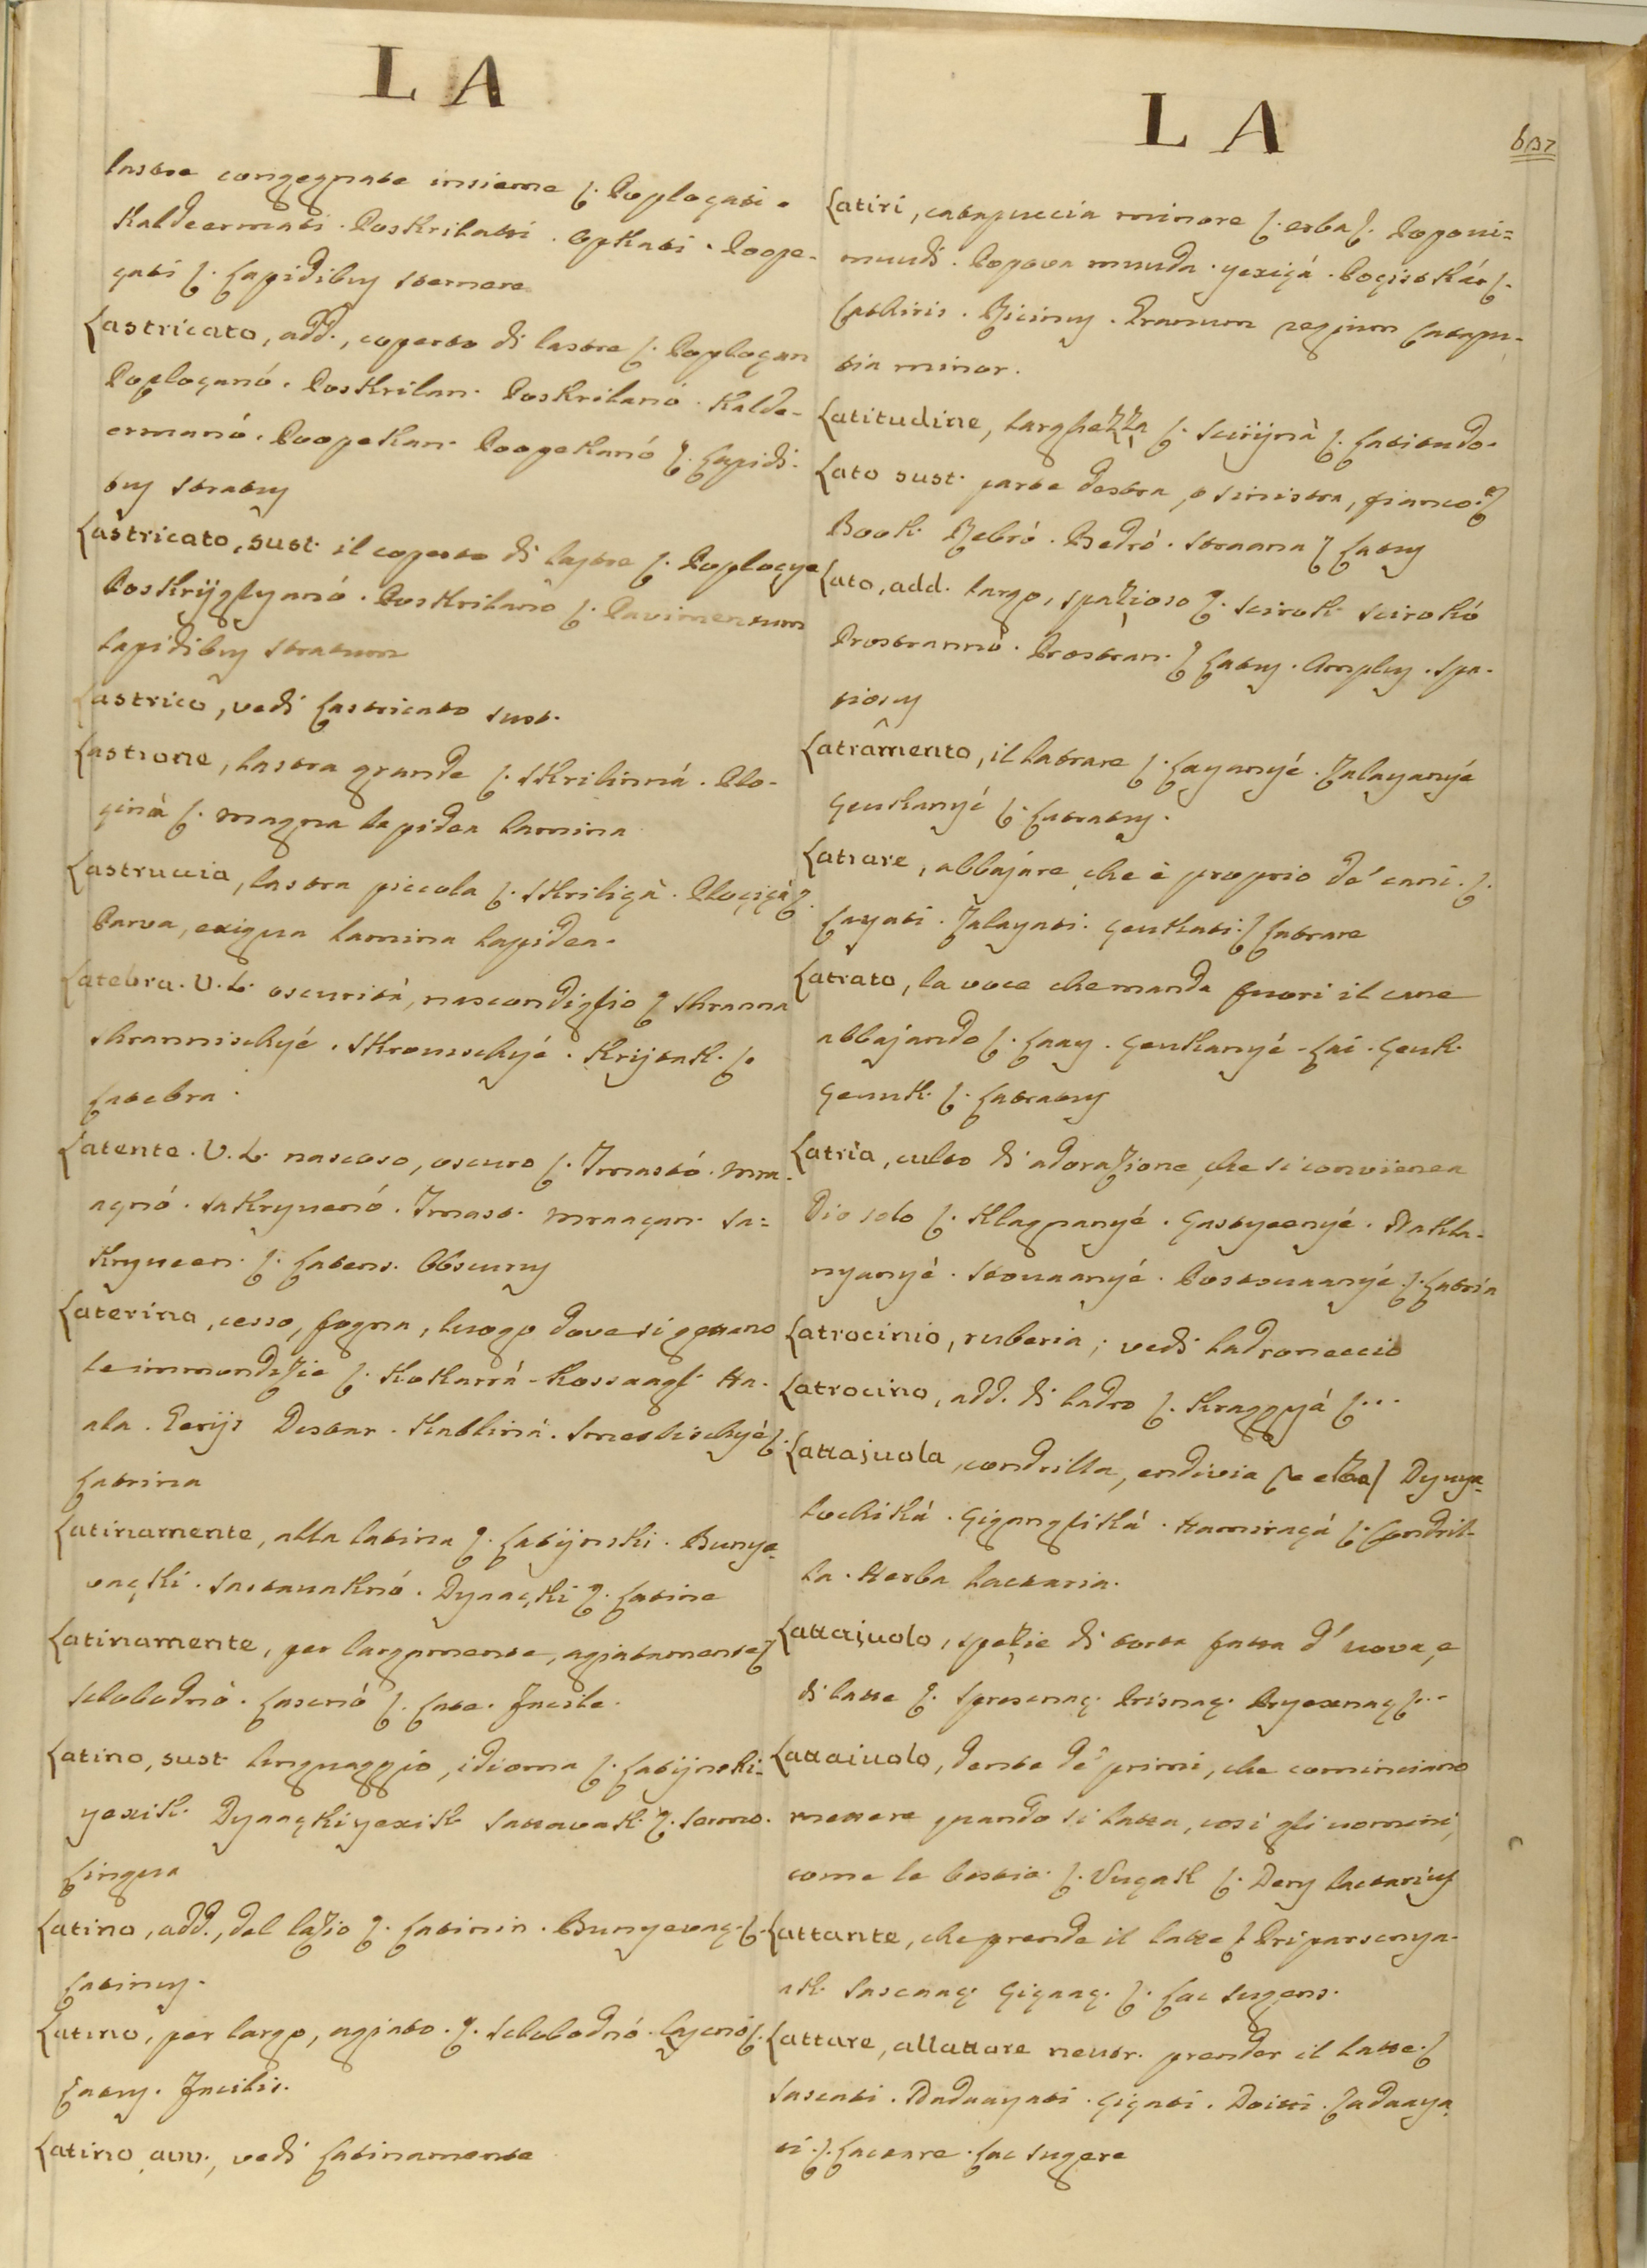 LA
lastre congegnate insieme ſ. Poploçati.
Kaldeermati. Poskrilatti. Opkati. Poope-
çati ſ. Lapidibus sternere
Lastricato, add., coperto di lastre ſ. Poploçan
Poploçanó. Poskrilan. Poskrilanó. Kalde-
ermanó. Poopekan. Poopekanó ſ. Lapidi-
bus stratus
Lastricato, sust. il coperto di lastre ſ. Poploçye
Poskrijglyanó. Poskrilanó ſ. Pavimentum
lapidibus stratum
Lastrico, vedi Lastricato sust.
Lastrone, lastra grande ſ. Skrilinná. Plo-
çinà ſ. Magna lapidea lamina
Lastruccia, lastra piccola ſ. Skriliçà. Ploçiçà ſ.
Parva, exigua lamina lapidea.
Latebra. V. L. oscurità, nascondiglio ſ. Shranna
Shrannischyé. Skrovischyé. Krijtak. ſ.
Latebra.
Latente. V. L. nascoso, oscuro ſ. Tmastó. Mra-
açnó. Sakryvenó. Tmast. Mraaçan. Sa=
kryveen. ſ. Latens. Obscurus
Laterina, cesso, fogna, luogo dove si gettano
le immondizie ſ. Kokarrà. Kossaagl. Ha-
ala. Perijs Destar. Kabliná. Smetlischyè ſ.
Latrina
Latinamente, alla latina ſ. Latijnski. Bunye-
vaçki. Sastavaknó. Dyaaçki ſ. Latine
Latinamente, per largamente, agiatamente ſ.
Slobodnò. Lascnò ſ. Late. Facile.
Latino, sust. linguaggio, idioma ſ. Latijnski-
yezik. Dyaaçkiyezik Sattavak. ſ. Sermo.
Lingua
Latino, add., del lazio ſ. Latinin. Bunyevaç. ſ.
Latinus.
Latino, per largo, agiato. ſ. Slobodnó. Lascnó ſ.
Latus. Facilis.
Latino avv., vedi Latinamente
LA
Latiri, catapuccia minore ſ. erba ſ. Poponi=
muudi. Popova muuda. yeziçá. Poçistkár ſ.
Lathiris. Ricinus. Granum regium Catapu-
tia minor.
Latitudine, larghezza ſ. Scirijnà ſ. Latitudo.
Lato sust. parte destra, o sinistra, fianco ſ.
Book. Rebró. Bedró. Straana ſ Latus
Lato, add. largo, spazioso ſ. Scirok. Scirokó
Prostrannò. Prostran. ſ Latus. Amplus. Spa-
tiosus
Latrâmento, il latrare ſ. Layanyé. Zalayanyé
Çeukanyé ſ. Latratus.
Latrare, abbajare, che è proprio de' cani. ſ.
Layati. Zalayati. Çeukati. ſ Latrare
Latrato, la voce che manda fuori il cane
abbajando ſ. Laay. Çeukanyé. Lai. Çeuk.
Çeunk. ſ. Latratus
Latria, culto di adorazione, che si conviene a
Dio solo ſ. Klagnanyé. Çastyeenyé. Nakla-
nyanyé. Stovaanyé. Poststovaanyé. ſ. Latria
Latrocinio, ruberia; vedi ladroneccio
Latrocino, add. di ladro ſ. Kraggyá ſ...
Lattajuola, condrilla, endivia ſ. erba ſ Dyvya-
lochiká. Gigangliká. Hamiraçá ſ. Condril-
la. Herba lactaria.
Lattajuolo, spezie di torta fatta d' uova, e
di latte ſ. Spresnaç. Prisnaç. Pryeznaç ſ...
Lattaiuolo, dente de' primi, che cominciano
mettere quando si latta, così gli uomini,
come le bestie. ſ. Vuçak ſ. Dens lactarius
Lattante, che prende il latte ſ Priparsenya-
ak. Sascaaç. Çiçaaç. ſ. Lac sugens.
Lattare, allattare neutr. prender il latte. ſ
Sascati. Dadaayati. Çiçati. Doitti. Zadaaya-
ti. ſ. Lactare. Lac sugere